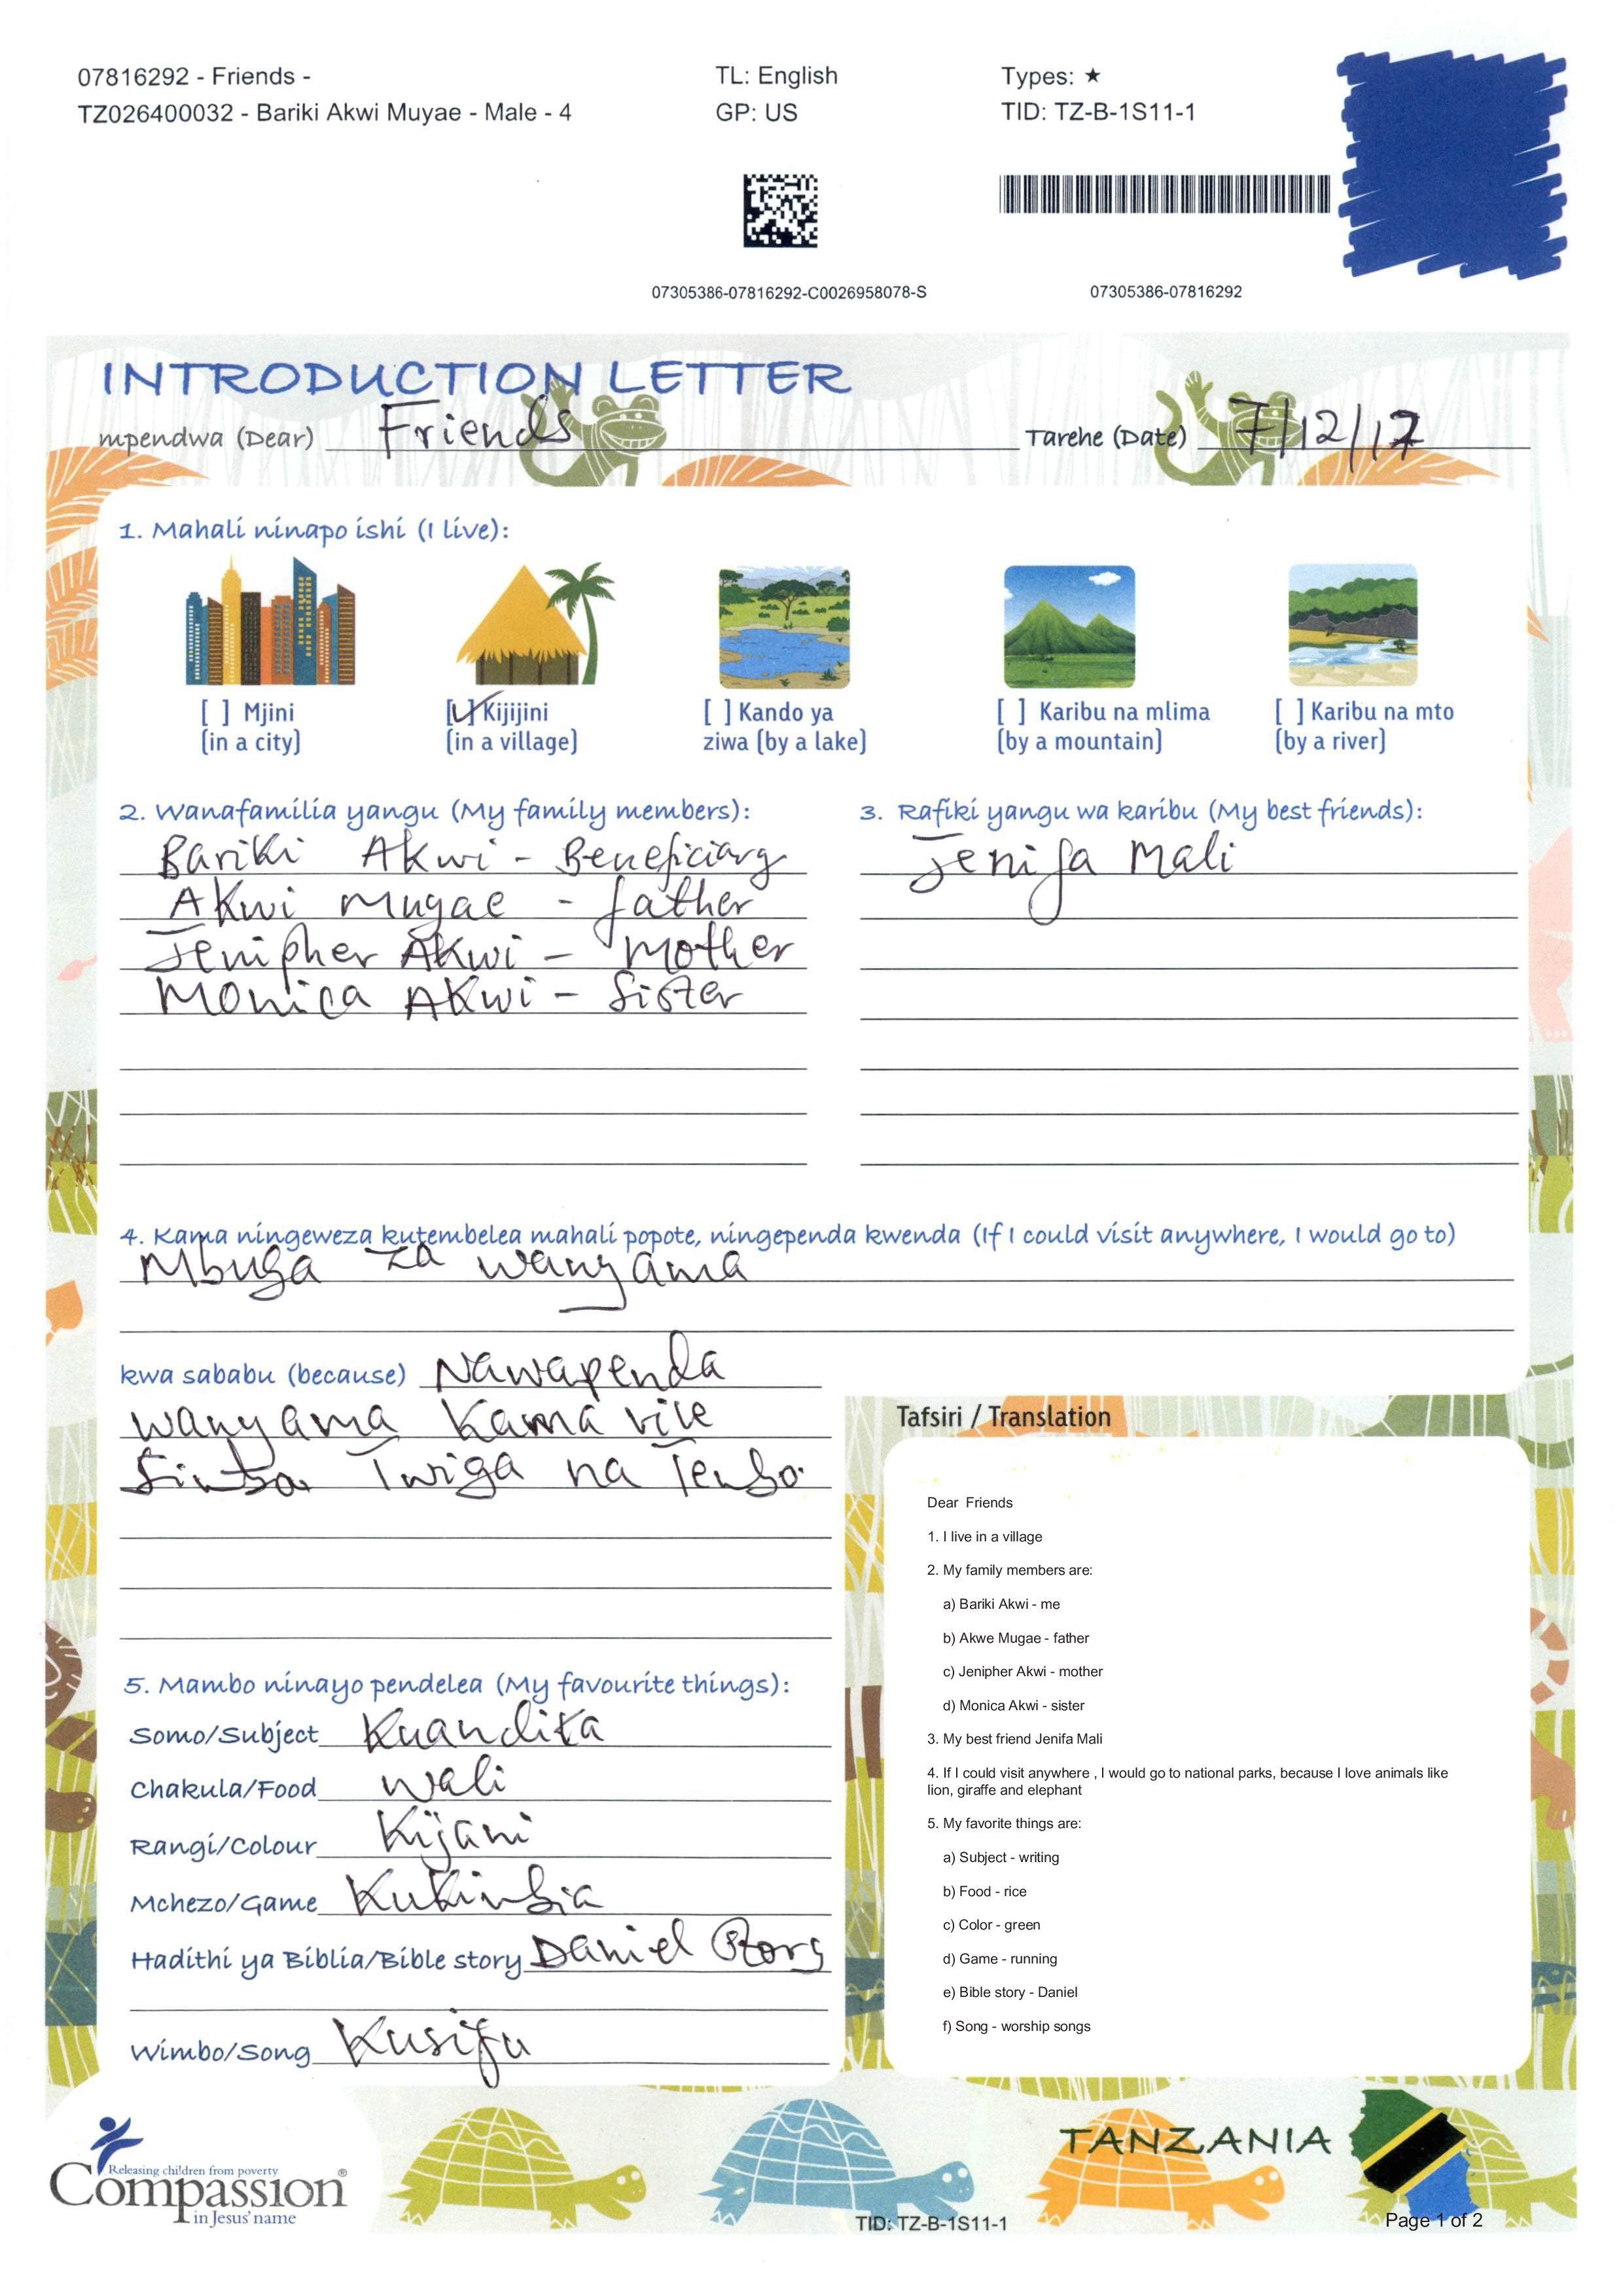 07816292 - Friends -
TZ026400032 - Bariki Akwi Muyae - Male - 4
TL: English
GP: US
Types: ★
TID: TZ-B-1S11-1
07305386-07816292-C0026958078-S
07305386-07816292
INTRODUCTION LETTER
mpendwa (Dear) Friends
Tarehe (Date) 7/12/17
1. Mahali ninapo ishi (I live):
[ ] Mjini
(in a city)
[✓] Kijijini
(in a village)
[ ] Kando ya
ziwa (by a lake)
[ ] Karibu na mlima
(by a mountain)
[ ] Karibu na mto
(by a river)
2. Wanafamilia yangu (My family members):
Bariki Akwi - Beneficiary
Akwi Mugae - father
Jenipher Akwi - Mother
Monica Akwi - Sister
3. Rafiki yangu wa karibu (My best friends):
Jenifa Mali
4. Kama ningeweza kutembelea mahali popote, ningependa kwenda (If I could visit anywhere, I would go to)
Mbuga za wanyama
kwa sababu (because) Nawapenda
wanyama Kama vile
Simba Twiga na Tembo
5. Mambo ninayo pendelea (My favourite things):
Somo/Subject Kuandika
Chakula/Food wali
Rangi/Colour Kijani
Mchezo/Game Kukimbia
Hadithi ya Biblia/Bible story Daniel Story
Wimbo/Song Kusifu
Tafsiri / Translation
Dear Friends
1. I live in a village
2. My family members are:
a) Bariki Akwi - me
b) Akwe Mugae - father
c) Jenipher Akwi - mother
d) Monica Akwi - sister
3. My best friend Jenifa Mali
4. If I could visit anywhere , I would go to national parks, because I love animals like
lion, giraffe and elephant
5. My favorite things are:
a) Subject - writing
b) Food - rice
c) Color - green
d) Game - running
e) Bible story - Daniel
f) Song - worship songs
Releasing children from poverty
Compassion®
in Jesus' name
TANZANIA
TID: TZ-B-1S11-1
Page 1 of 2